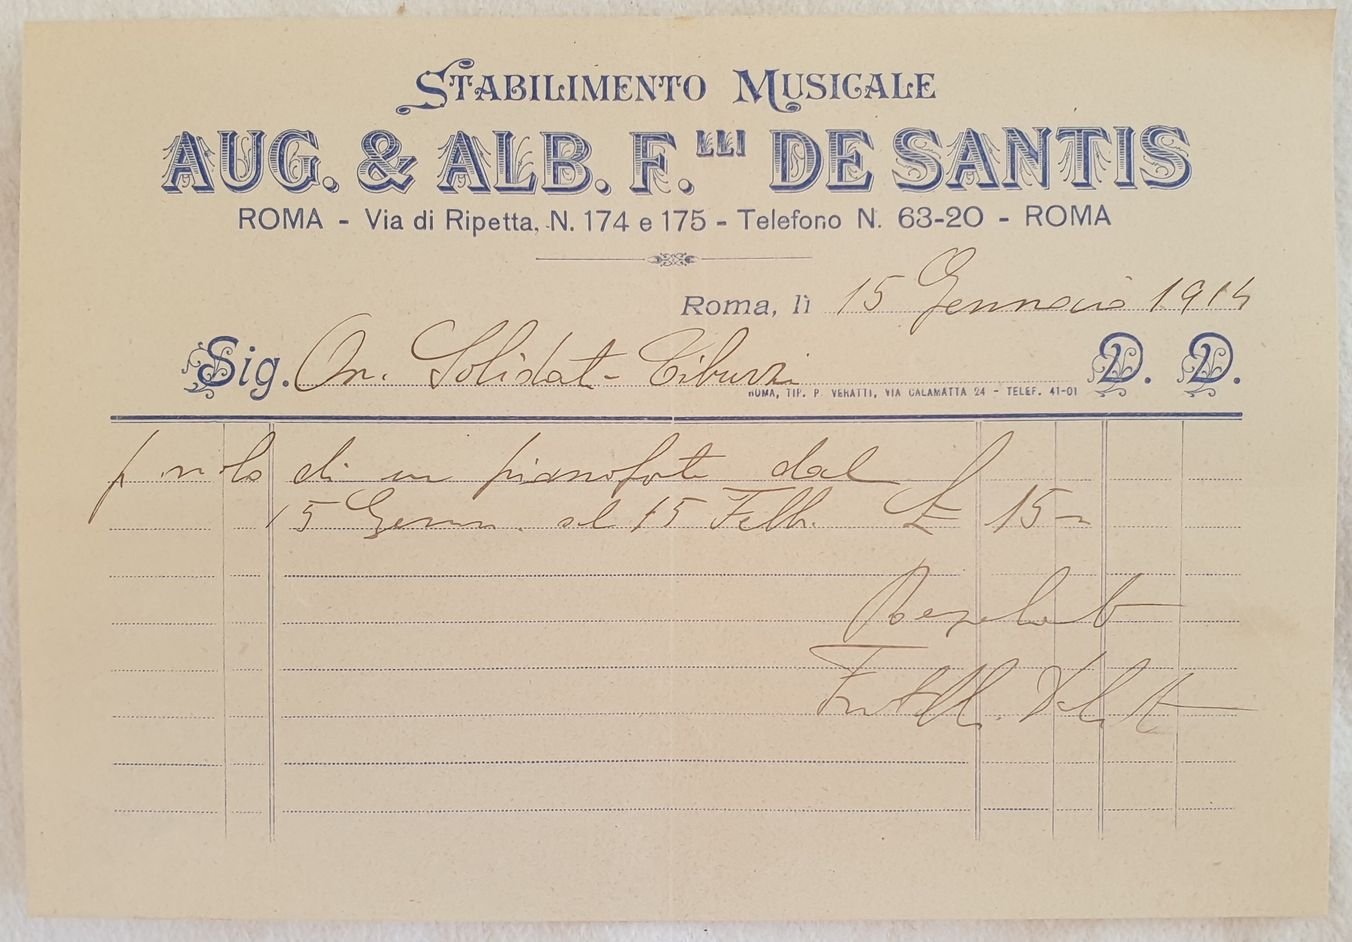 STABILIMENTO MUSICALE
AUG. & ALB. F.LLI DE SANTIS
ROMA - Via di Ripetta, N. 174 e 175 - Telefono N. 63-20 - ROMA
Roma, lì 15 Gennaio 1914
Sig. On. Solidati-Tiburzi D. D.
ROMA, TIP. P. VERATTI, VIA CALAMATTA 24 - TELEF. 41-01
p nolo di un pianoforte dal
15 Genn. al 15 Febb. £ 15-
Fratelli